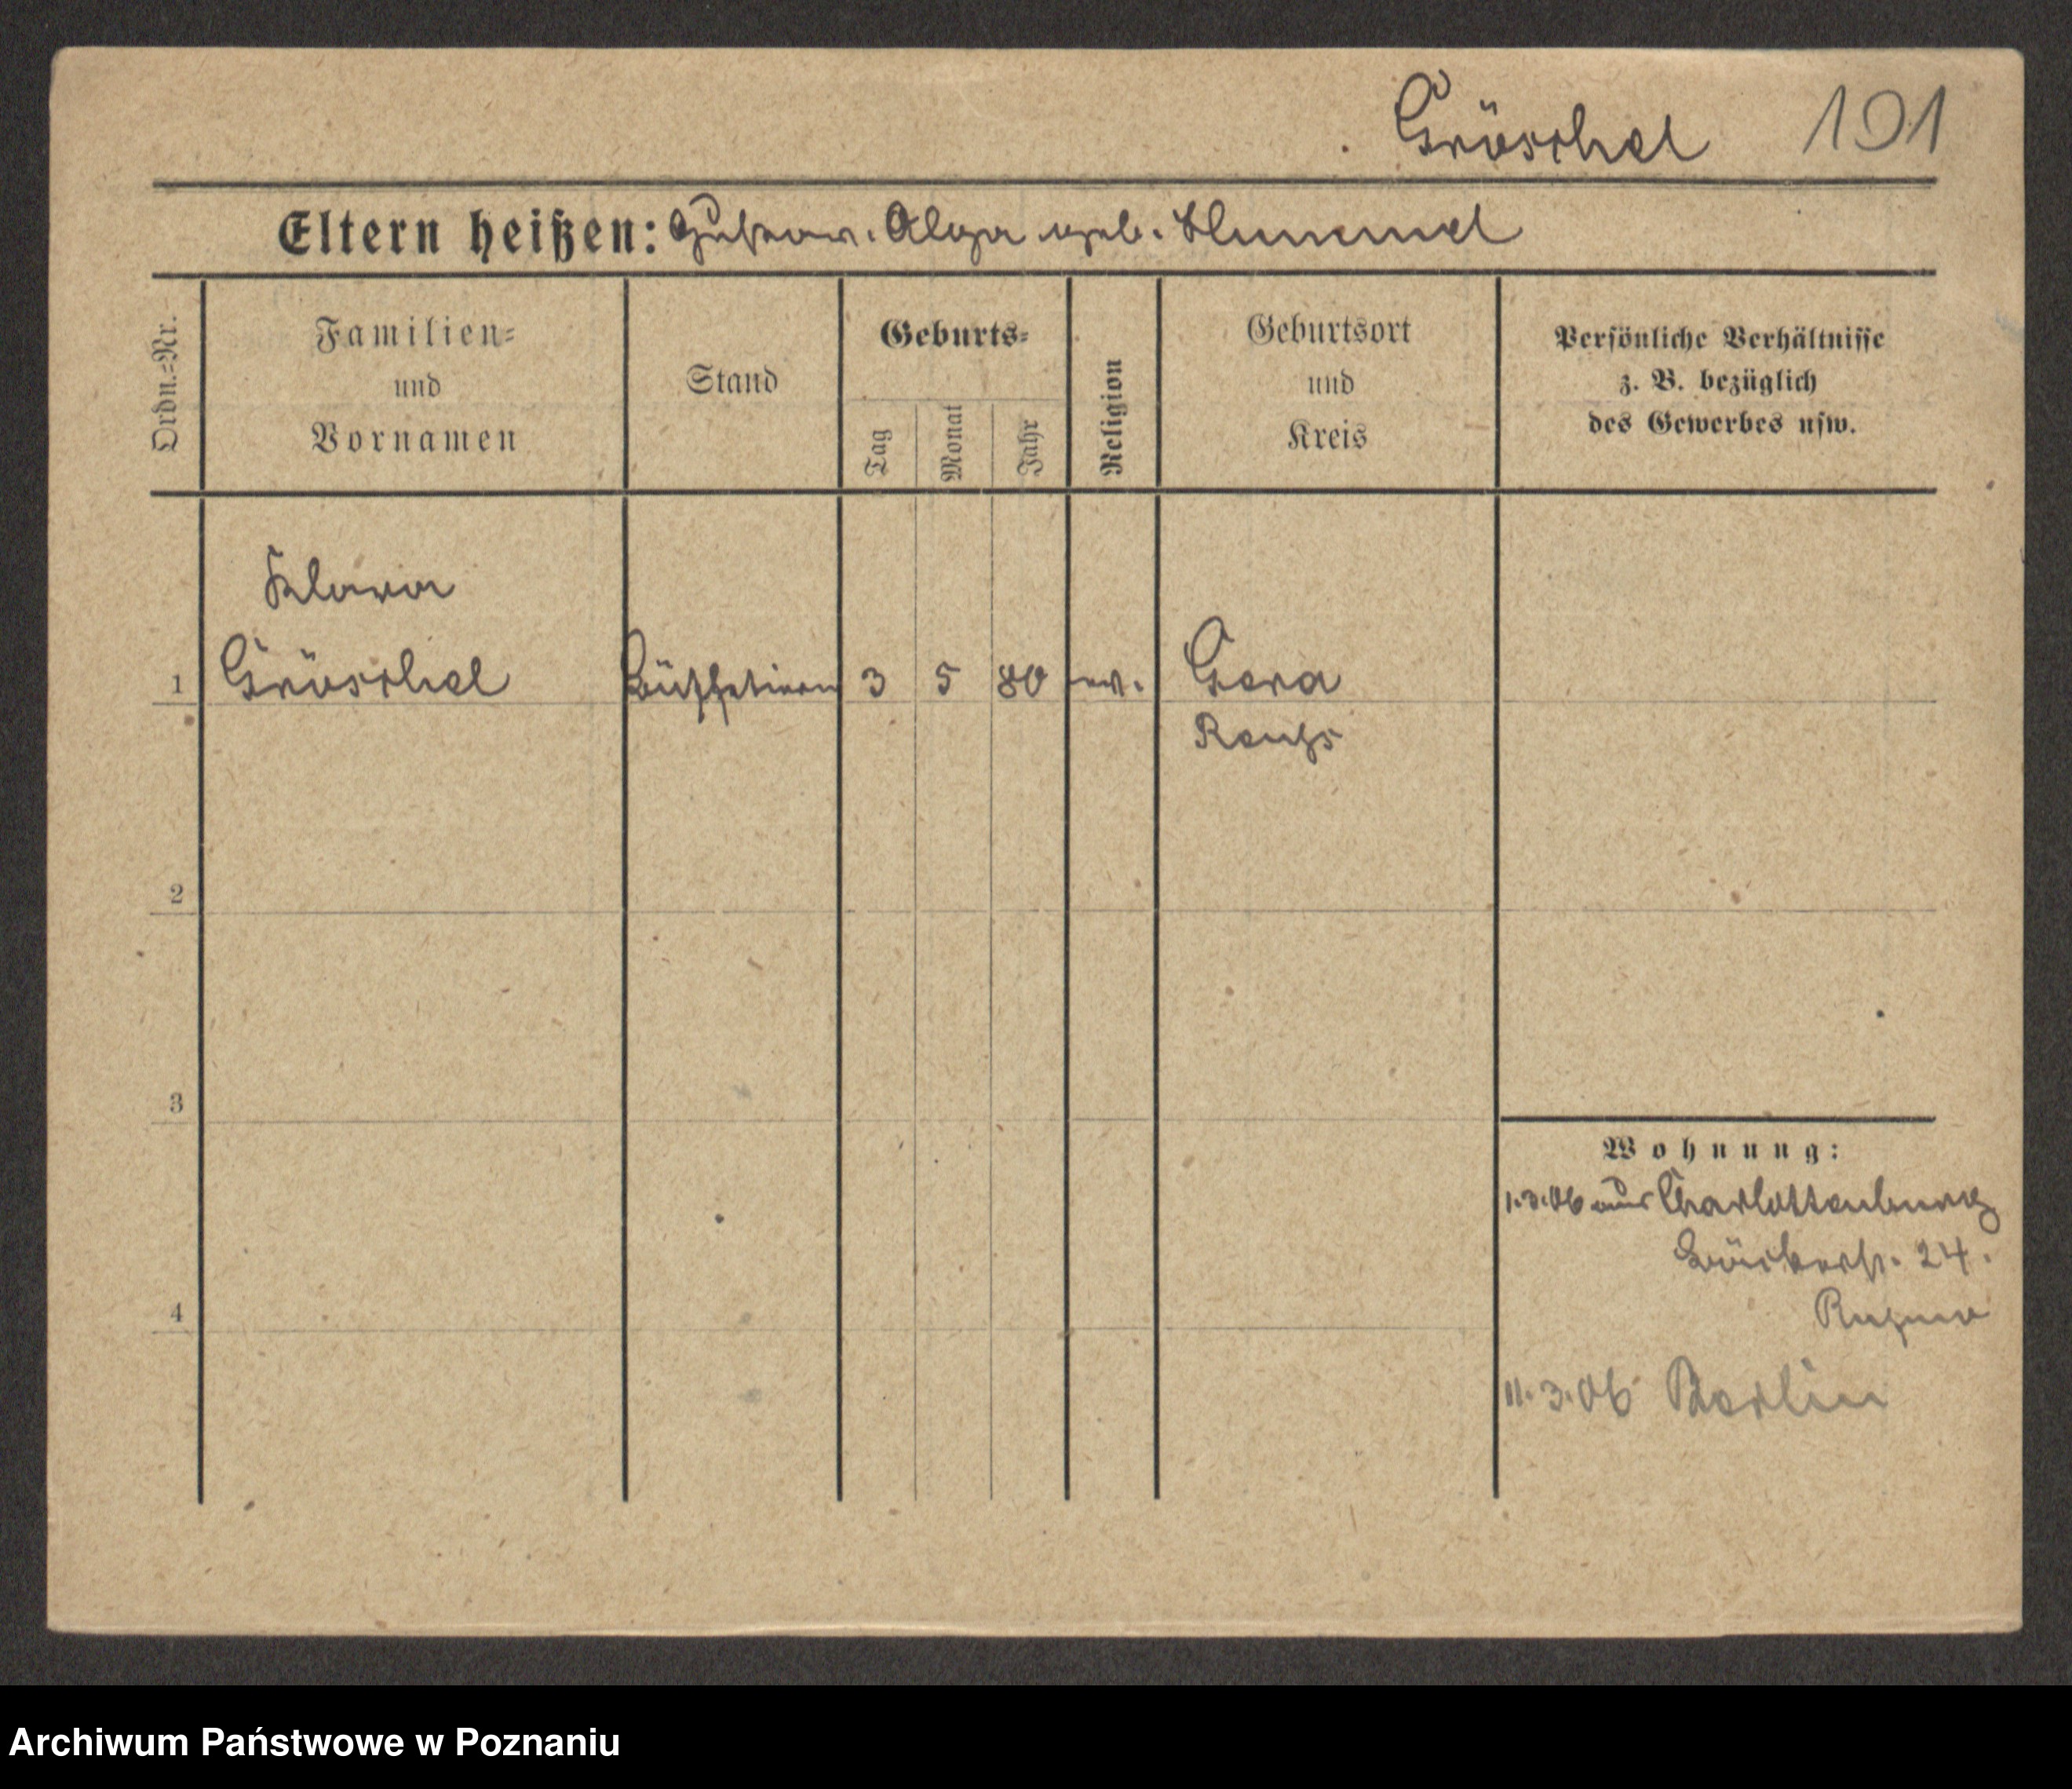 Gröschel 191
Eltern heißen: Gustav. Olga geb. Hummel
Ordn.=Nr.
Familien=
und
Vornamen
Stand
Geburts=
Tag
Monat
Jahr
Religion
Geburtsort
und
Kreis
Persönliche Verhältnisse
z. B. bezüglich
des Gewerbes usw.
Klara
1 Gröschel 3 5 80 ev. Gera
Reuß
2
3
4
Wohnung:
1.3.06 aus Charlottenburg
24.
11.3.06 Berlin
Archiwum Państwowe w Poznaniu